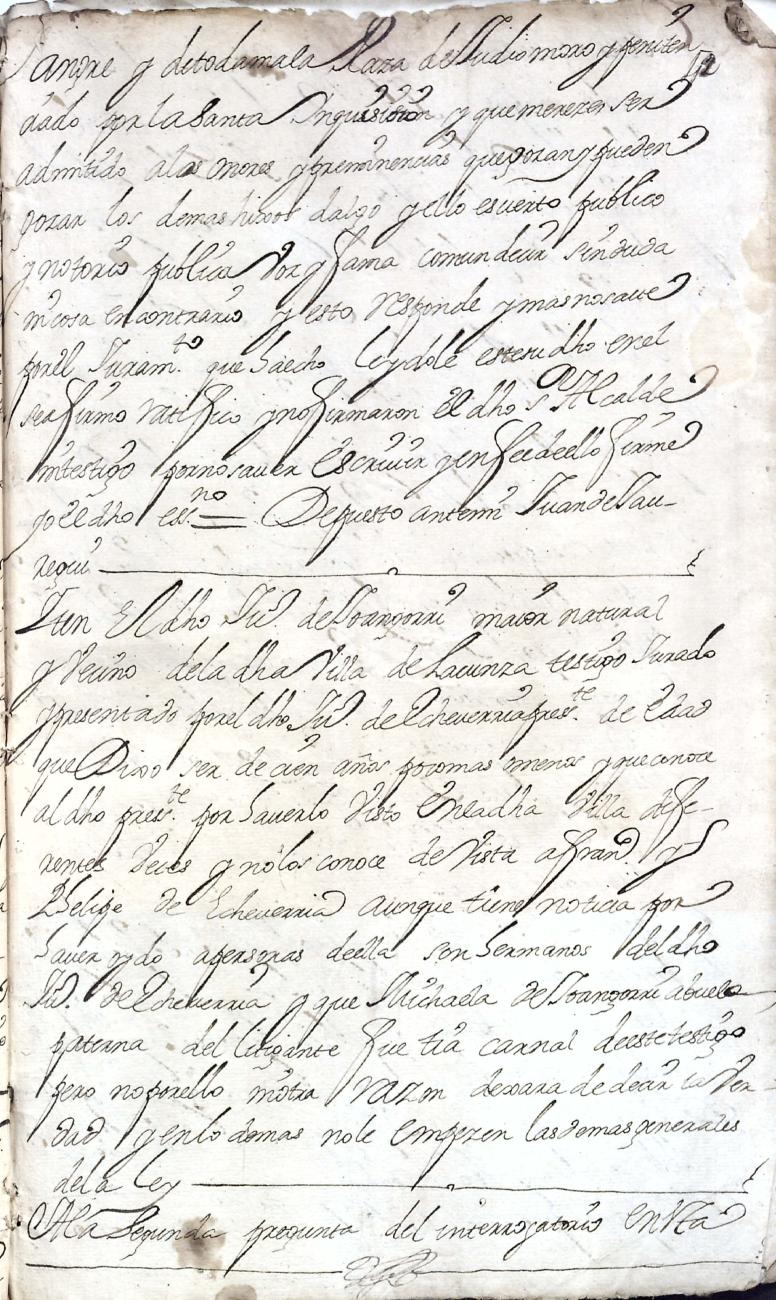 sangre y de toda mala Raza de Judio moro y peniten
ciado por la Santa Inquisicion y que mereze ser
admitido a las onores y preminencias que gozan y pueden
gozar los demas hixos dalgo y ello es cierto publico
y notorio publica Voz y fama comun decir sin duda
ni cosa en contrario y esto responde y mas no save
por el Juram.to que ha echo leydole este su dho en el
se afirmo ratifico y no firmaron el dho s.r Alcalde
ni testigo por no saver escrivir y en fee de ello firme
yo el dho ess.no = Depuesto ante mi Juan de Jau-
regui
Iten El dho Ju.o de Igongorri maior natural
y Vecino de la dha Villa de Lacunza testigo Jurado
y presentado por el dho Ju.o de Echeverria pres.te de edad
que Dixo ser de cien años poco mas o menos y que conoce
al dho pres.te por haverlo Visto en la dha Villa dife-
rentes veces y no los conoce de Vista a Fran.co y
Phelipe de Echeverria aunque tiene noticia por
haver oydo a personas de ella son hermanos del dho
Ju.o de Echeverria y que Michaela de Igongorri abuela
paterna del litigante fue tia carnal de este testigo
pero no por ello ni otra razon dexara de decir la Ver-
dad y en lo demas no le empezen las demas generales
de la ley
A la Segunda pregunta del interrogatorio en Vta